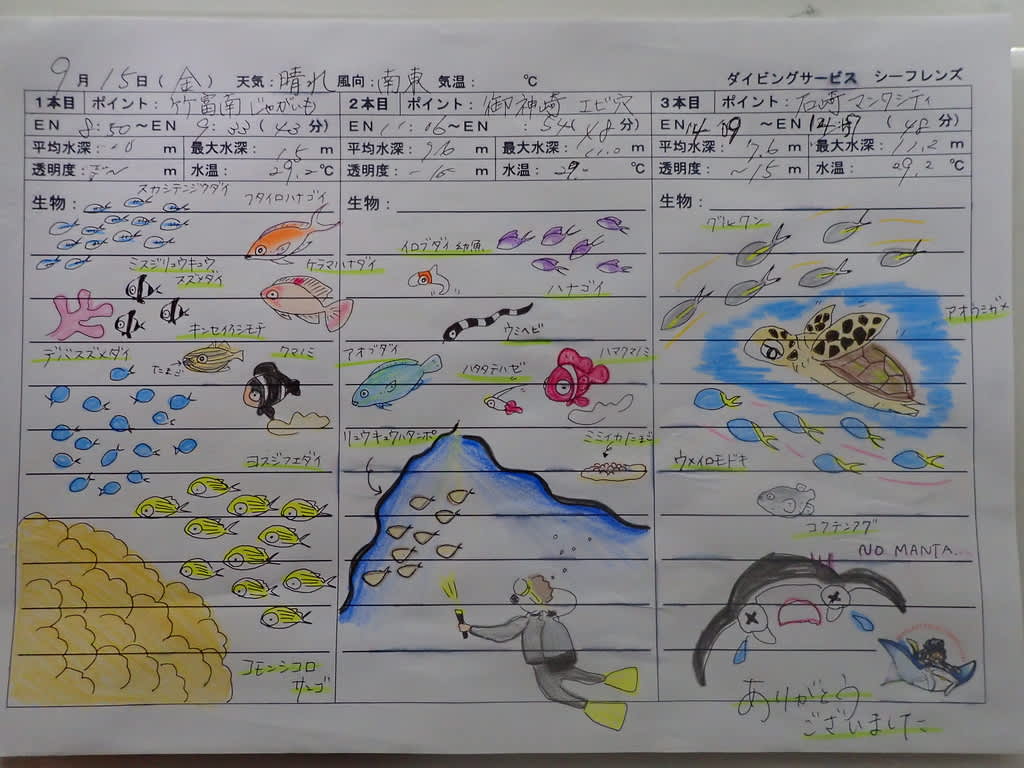 9月15日(金) 天気:晴れ 風向:南東 気温: ℃ ダイビングサービス シーフレンズ
1本目 ポイント:竹富南じゃがいも
EN 8:50~EN 9:33(43分)
平均水深: m 最大水深: m
透明度: m 水温: 29.2℃
生物:
スカシテンジクダイ
フタイロハナゴイ
ミスジリュウキュウ
スズメダイ
ケラマハナダイ
キンセイイシモチ
デバスズメダイ
たまご
クマノミ
ヨスジフエダイ
コモンシコロ
サンゴ
2本目 ポイント:御神崎 エビ穴
EN 11:06~EN :54(48分)
平均水深: 9.6m 最大水深: m
透明度: m 水温: 29. ℃
生物:
イロブダイ幼魚
ハナゴイ
ウミヘビ
アオブダイ
ハタタテハゼ
ハマクマノミ
リュウキュウハタンポ
3本目 ポイント:石崎マンタシティ
EN 14:09~EN 14:57(48分)
平均水深: 7.6m 最大水深: 11.2m
透明度: ~15m 水温: 29.2℃
生物:
グルクン
アオウミガメ
ウメイロモドキ
コクテンフグ
NO MANTA...
ありがとう
ございました